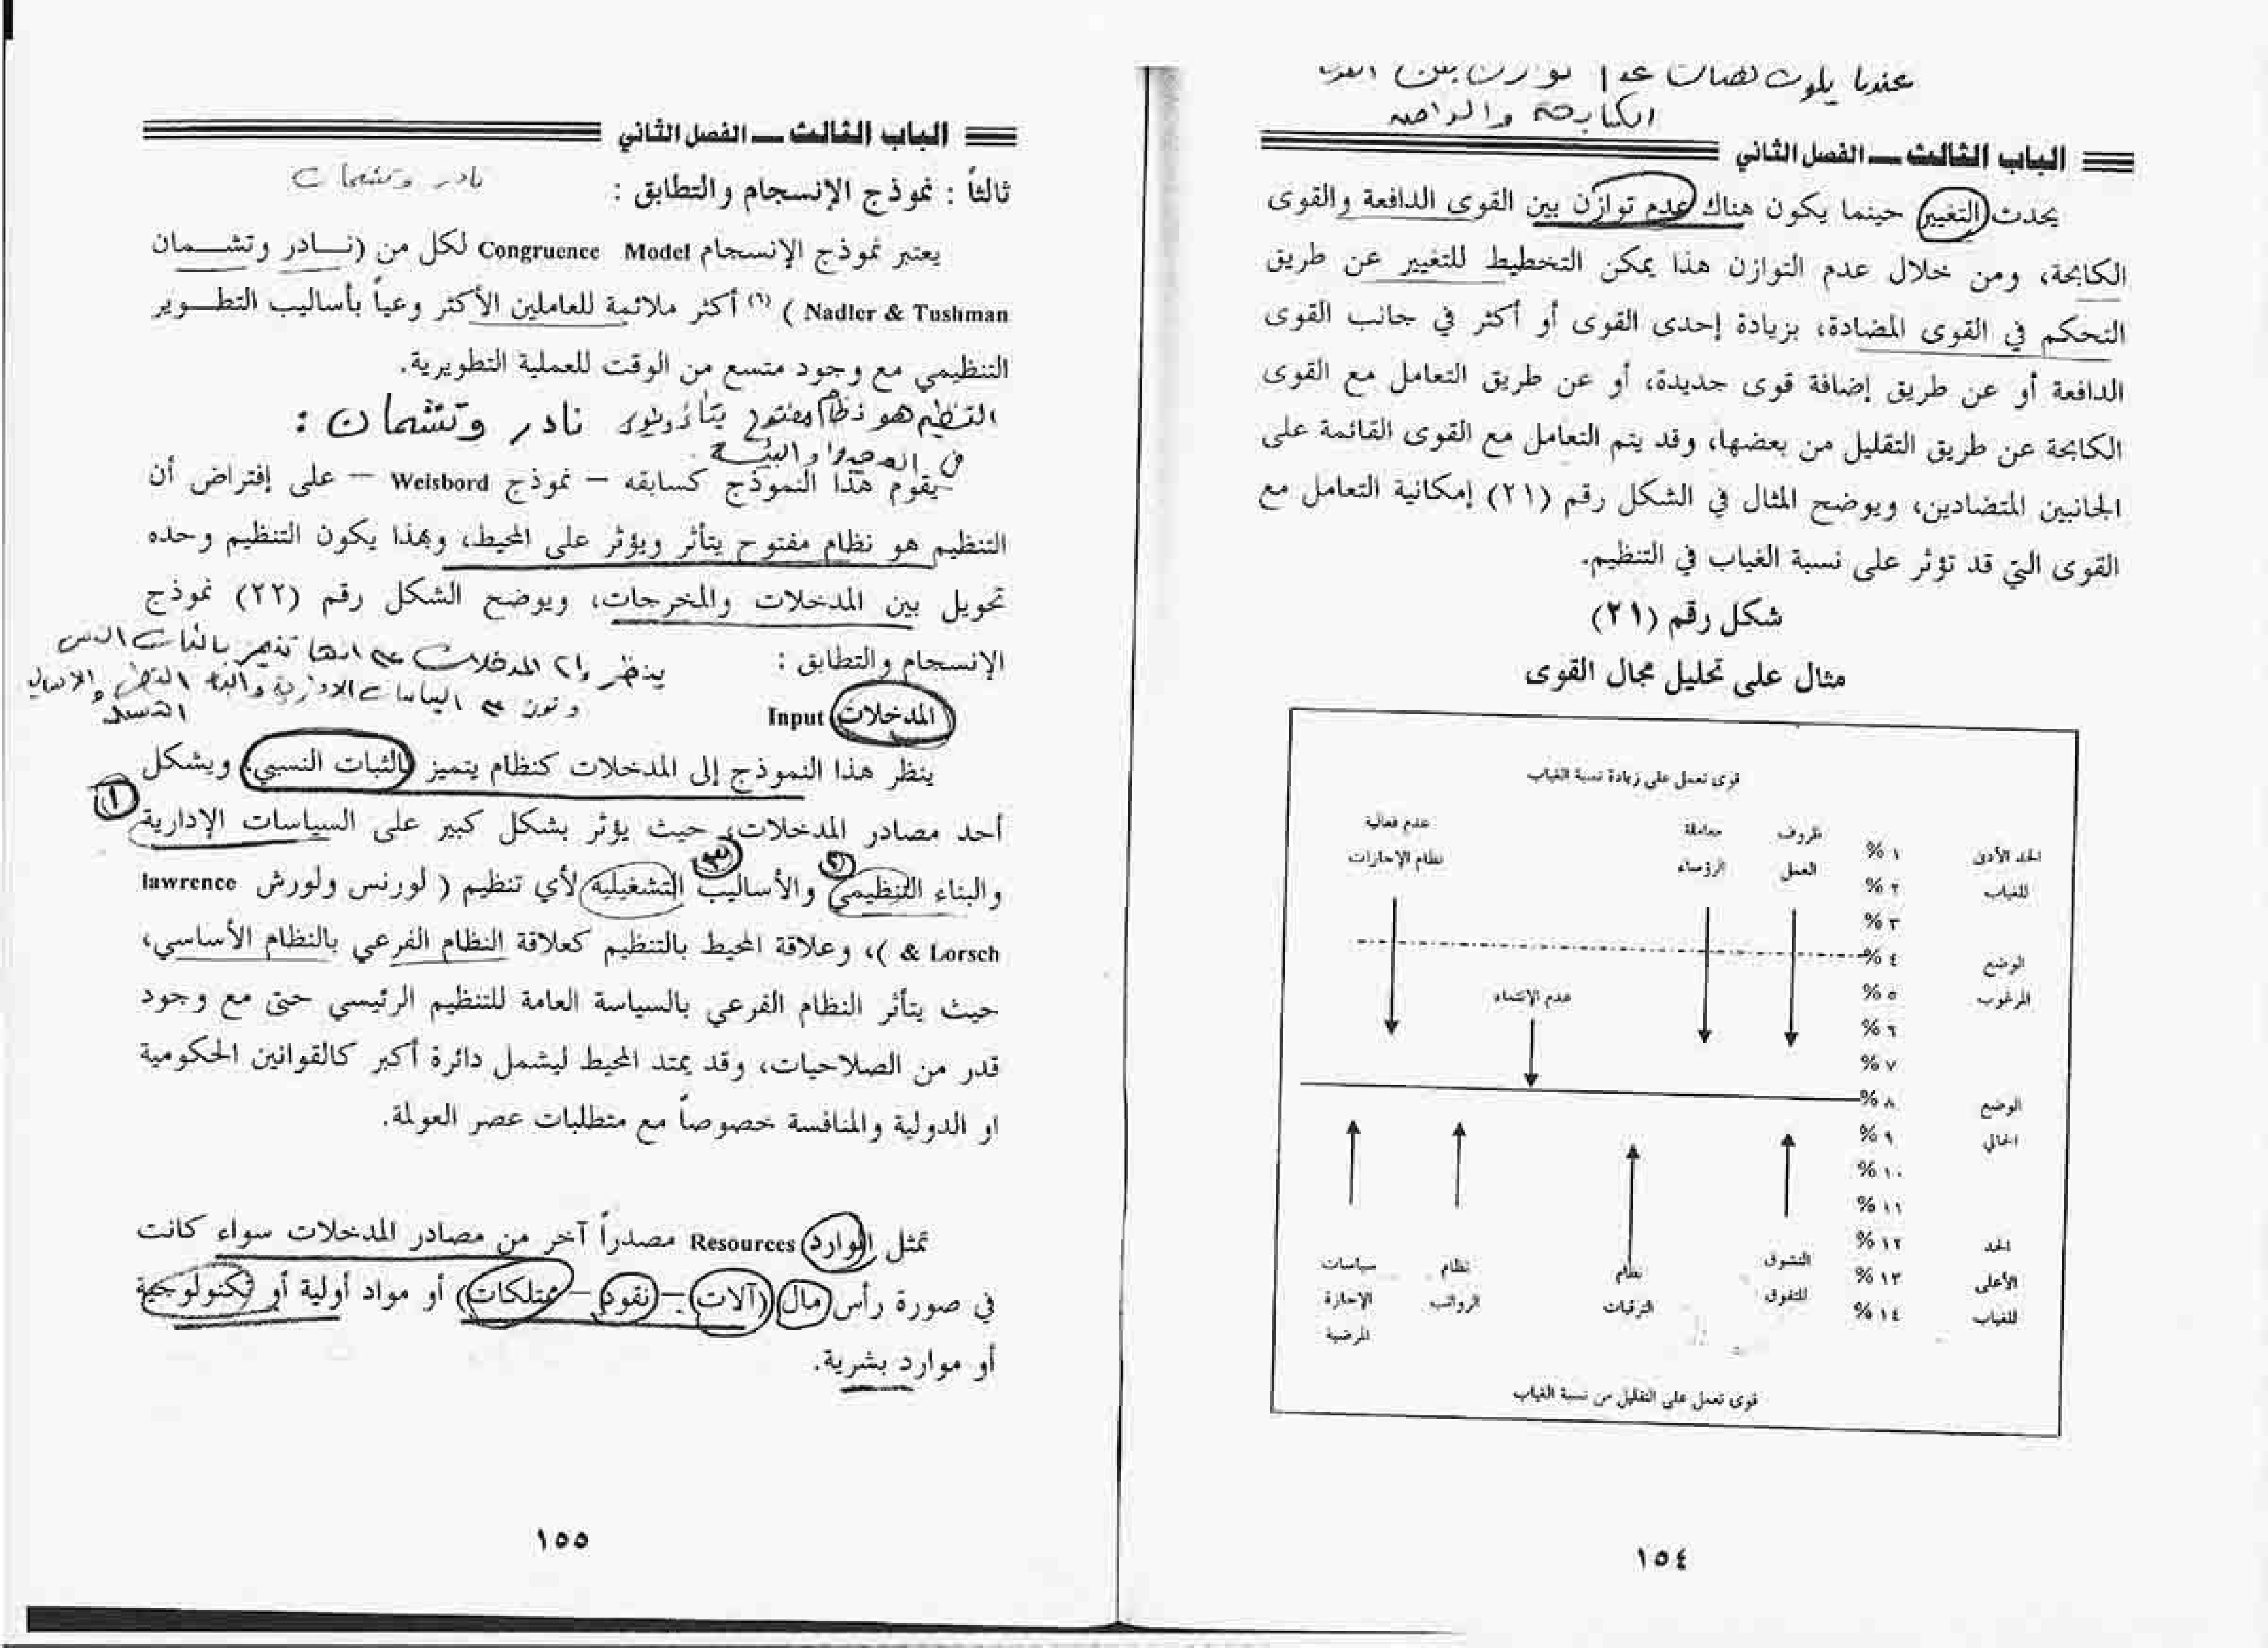 عندما يكون هناك عدم توازن بين القوى
الكابحة والدافعة
الباب الثالث ــ الفصل الثاني
يحدث التغيير حينما يكون هناك عدم توازن بين القوى الدافعة والقوى
الكابحة، ومن خلال عدم التوازن هذا يمكن التخطيط للتغيير عن طريق
التحكم في القوى المضادة، بزيادة إحدى القوى أو أكثر في جانب القوى
الدافعة أو عن طريق إضافة قوى جديدة، أو عن طريق التعامل مع القوى
الكابحة عن طريق التقليل من بعضها، وقد يتم التعامل مع القوى القائمة على
الجانبين المتضادين، ويوضح المثال في الشكل رقم (٢١) إمكانية التعامل مع
القوى التي قد تؤثر على نسبة الغياب في التنظيم.
شكل رقم (٢١)
مثال على تحليل مجال القوى
قوى تعمل على زيادة نسبة الغياب
ظروف معاملة عدم فعالية
الحد الأدنى ١ % العمل الرؤساء نظام الإجازات
للغياب ٢ %
٣ %
الوضع ٤ %
المرغوب ٥ % عدم الإنتماء
٦ %
٧ %
الوضع ٨ %
الحالي ٩ %
١٠ %
١١ %
الحد ١٢ % التشوق نظام نظام سياسات
الأعلى ١٣ % للتفوق الترقيات الرواتب الإجازة
للغياب ١٤ % المرضية
قوى تعمل على التقليل من نسبة الغياب
١٥٤
الباب الثالث ــ الفصل الثاني
ثالثاً : نموذج الإنسجام والتطابق : نادر وتشمان
يعتبر نموذج الإنسجام Congruence Model لكل من (نـادر وتشـمان
Nadler & Tushman ) (٦) أكثر ملائمة للعاملين الأكثر وعياً بأساليب التطـوير
التنظيمي مع وجود متسع من الوقت للعملية التطويرية.
التنظيم هو نظام مفتوح يتأثر ويؤثر نادر وتشمان :
في المحيط والبيئة
يقوم هذا النموذج كسابقه – نموذج Weisbord – على إفتراض أن
التنظيم هو نظام مفتوح يتأثر ويؤثر على المحيط، وبهذا يكون التنظيم وحده
تحويل بين المدخلات والمخرجات، ويوضح الشكل رقم (٢٢) نموذج
الإنسجام والتطابق :
ينظر إلى المدخلات على انها تتميز بالثبات النسبي
المدخلات Input
ينظر هذا النموذج إلى المدخلات كنظام يتميز بالثبات النسبي، ويشكل
أحد مصادر المدخلات، حيث يؤثر بشكل كبير على السياسات الإدارية ١
والبناء التنظيمي ٢ والأساليب التشغيلية ٣ لأي تنظيم ( لورنس ولورش lawrence
& Lorsch )، وعلاقة المحيط بالتنظيم كعلاقة النظام الفرعي بالنظام الأساسي،
حيث يتأثر النظام الفرعي بالسياسة العامة للتنظيم الرئيسي حتى مع وجود
قدر من الصلاحيات، وقد يمتد المحيط ليشمل دائرة أكبر كالقوانين الحكومية
او الدولية والمنافسة خصوصاً مع متطلبات عصر العولمة.
تمثل الموارد Resources مصدراً آخر من مصادر المدخلات سواء كانت
في صورة رأس مال (آلات – نقود – ممتلكات) أو مواد أولية أو تكنولوجية
أو موارد بشرية.
١٥٥